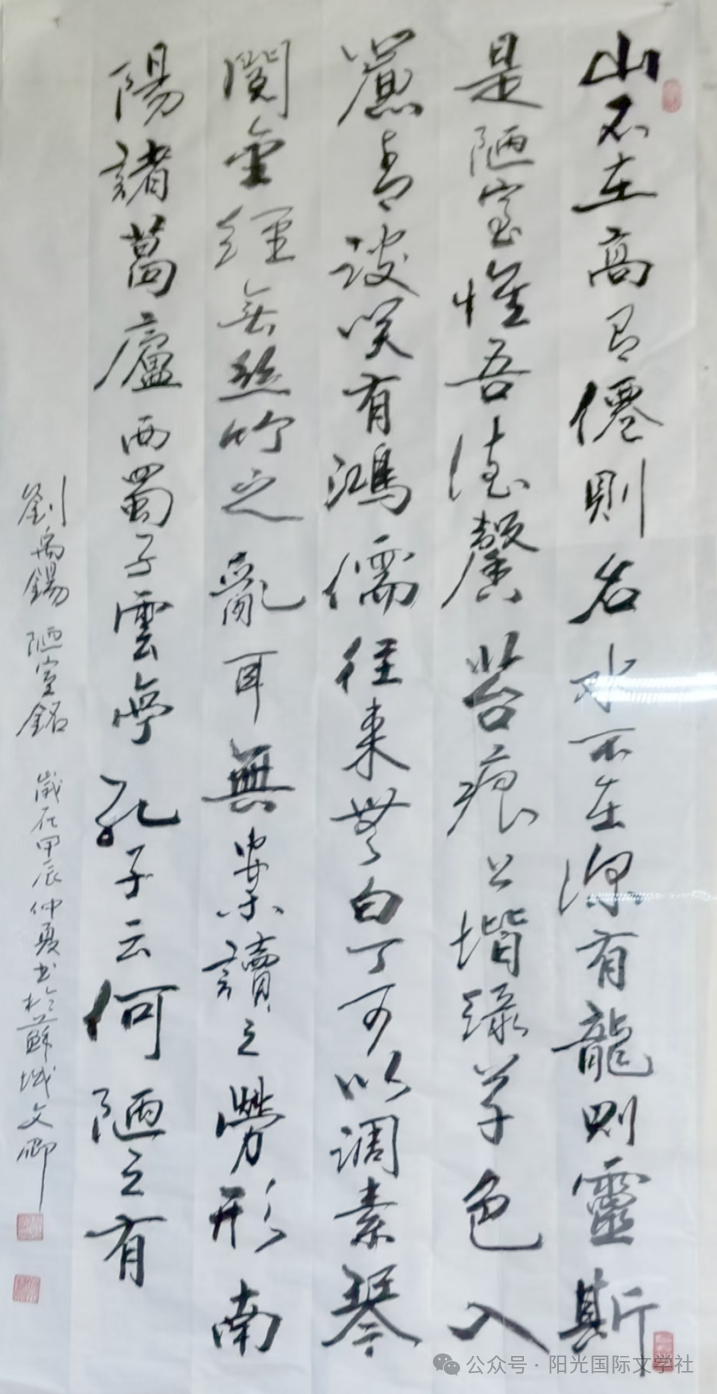 山不在高有僊則名水不在深有龍則靈斯
是陋室惟吾德馨苔痕上堦綠草色入
簾青談笑有鴻儒往來無白丁可以調素琴
閱金經無絲竹之亂耳無案讀之勞形南
陽諸葛廬西蜀子雲亭孔子云何陋之有
劉禹錫 陋室銘 歲在甲辰仲夏書於蘇城文卿
公众号 · 阳光国际文学社